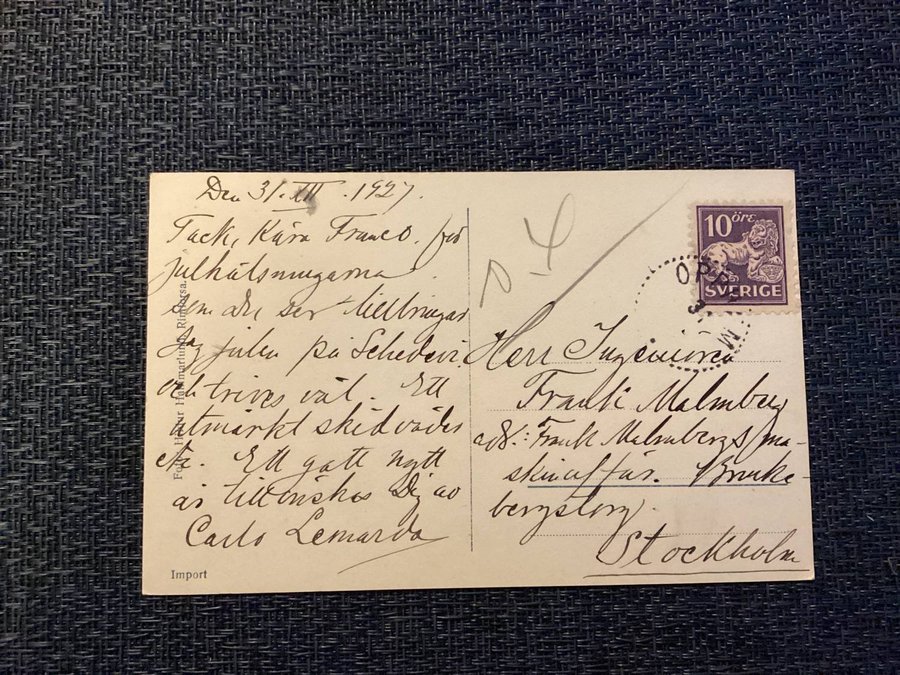 Den 31. XII. 1927.
Tack, Kära Franco, för
julhälsningarna.
som du ser tillbringar
jag julen på Schedevi
och trives väl. Ett
utmärkt skidväder
etc. Ett gott nytt
år tillönskas Dig av
Carlo Lemarda
Import
10 ÖRE
SVERIGE
Herr Ingeniören
Frank Malmberg
adr.: Frank Malmbergs ma-
skinaffär. Brunke-
bergstorg.
Stockholm